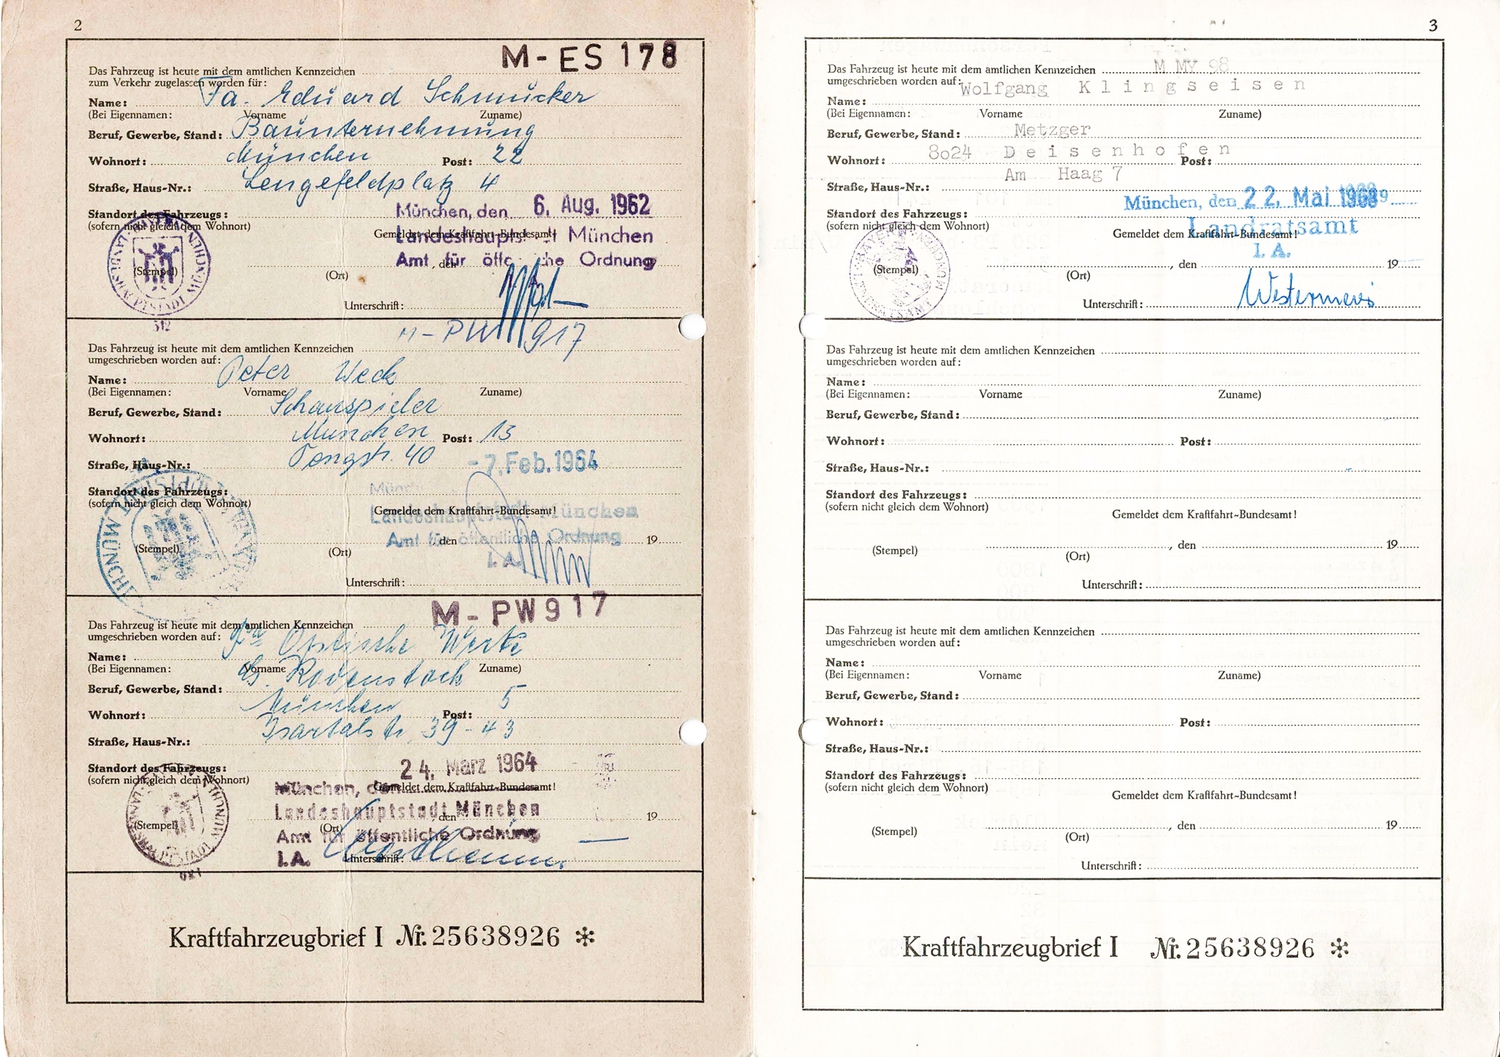 2
M-ES 178
Das Fahrzeug ist heute mit dem amtlichen Kennzeichen
zum Verkehr zugelassen worden für:
Name: Fa. Eduard Schmücker
(Bei Eigennamen: Vorname Zuname)
Beruf, Gewerbe, Stand: Bauunternehmung
Wohnort: München Post: 22
Straße, Haus-Nr.: Lengefeldplatz 4
Standort des Fahrzeugs:
(sofern nicht gleich dem Wohnort)
München, den 6. Aug. 1962
Gemeldet dem Kraftfahrt-Bundesamt!
Landeshauptstadt München
Amt für öffentliche Ordnung
(Stempel)
(Ort)
den
Unterschrift:
LANDESHAUPTSTADT MÜNCHEN
512
M-PW 917
Das Fahrzeug ist heute mit dem amtlichen Kennzeichen
umgeschrieben worden auf:
Name: Peter Weck
(Bei Eigennamen: Vorname Zuname)
Beruf, Gewerbe, Stand: Schauspieler
Wohnort: München Post: 13
Straße, Haus-Nr.: Tengstr. 40
-7. Feb. 1964
Standort des Fahrzeugs:
(sofern nicht gleich dem Wohnort)
Gemeldet dem Kraftfahrt-Bundesamt!
Landeshauptstadt München
Amt für öffentliche Ordnung
I.A.
(Stempel)
(Ort)
den
19
Unterschrift:
M-PW 917
Das Fahrzeug ist heute mit dem amtlichen Kennzeichen
umgeschrieben worden auf: Fa. Optische Werke
Name: G. Rodenstock
(Bei Eigennamen: Vorname Zuname)
Beruf, Gewerbe, Stand:
Wohnort: München Post: 5
Straße, Haus-Nr.: Isartalstr. 39-43
Standort des Fahrzeugs:
(sofern nicht gleich dem Wohnort)
24. März 1964
München, den
Gemeldet dem Kraftfahrt-Bundesamt!
Landeshauptstadt München
Amt für öffentliche Ordnung
I.A.
(Stempel)
(Ort)
den
19
Unterschrift:
LANDESHAUPTSTADT MÜNCHEN
Kraftfahrzeugbrief I Nr. 25638926 *
3
Das Fahrzeug ist heute mit dem amtlichen Kennzeichen M MV 98
umgeschrieben worden auf: Wolfgang Klingseisen
Name:
(Bei Eigennamen: Vorname Zuname)
Beruf, Gewerbe, Stand: Metzger
Wohnort: 8024 Deisenhofen Post:
Straße, Haus-Nr.: Am Haag 7
München, den 22. Mai 1969
Standort des Fahrzeugs:
(sofern nicht gleich dem Wohnort)
Landratsamt
Gemeldet dem Kraftfahrt-Bundesamt!
I. A.
(Stempel)
(Ort)
, den
19
Unterschrift:
Das Fahrzeug ist heute mit dem amtlichen Kennzeichen
umgeschrieben worden auf:
Name:
(Bei Eigennamen: Vorname Zuname)
Beruf, Gewerbe, Stand:
Wohnort: Post:
Straße, Haus-Nr.:
Standort des Fahrzeugs:
(sofern nicht gleich dem Wohnort)
Gemeldet dem Kraftfahrt-Bundesamt!
(Stempel)
, den 19
(Ort)
Unterschrift:
Das Fahrzeug ist heute mit dem amtlichen Kennzeichen
umgeschrieben worden auf:
Name:
(Bei Eigennamen: Vorname Zuname)
Beruf, Gewerbe, Stand:
Wohnort: Post:
Straße, Haus-Nr.:
Standort des Fahrzeugs:
(sofern nicht gleich dem Wohnort)
Gemeldet dem Kraftfahrt-Bundesamt!
(Stempel)
, den 19
(Ort)
Unterschrift:
Kraftfahrzeugbrief I Nr. 25638926 *